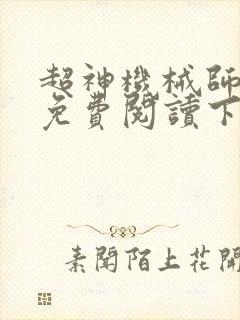 超神機械師
免費閱讀下
素聞陌上花開